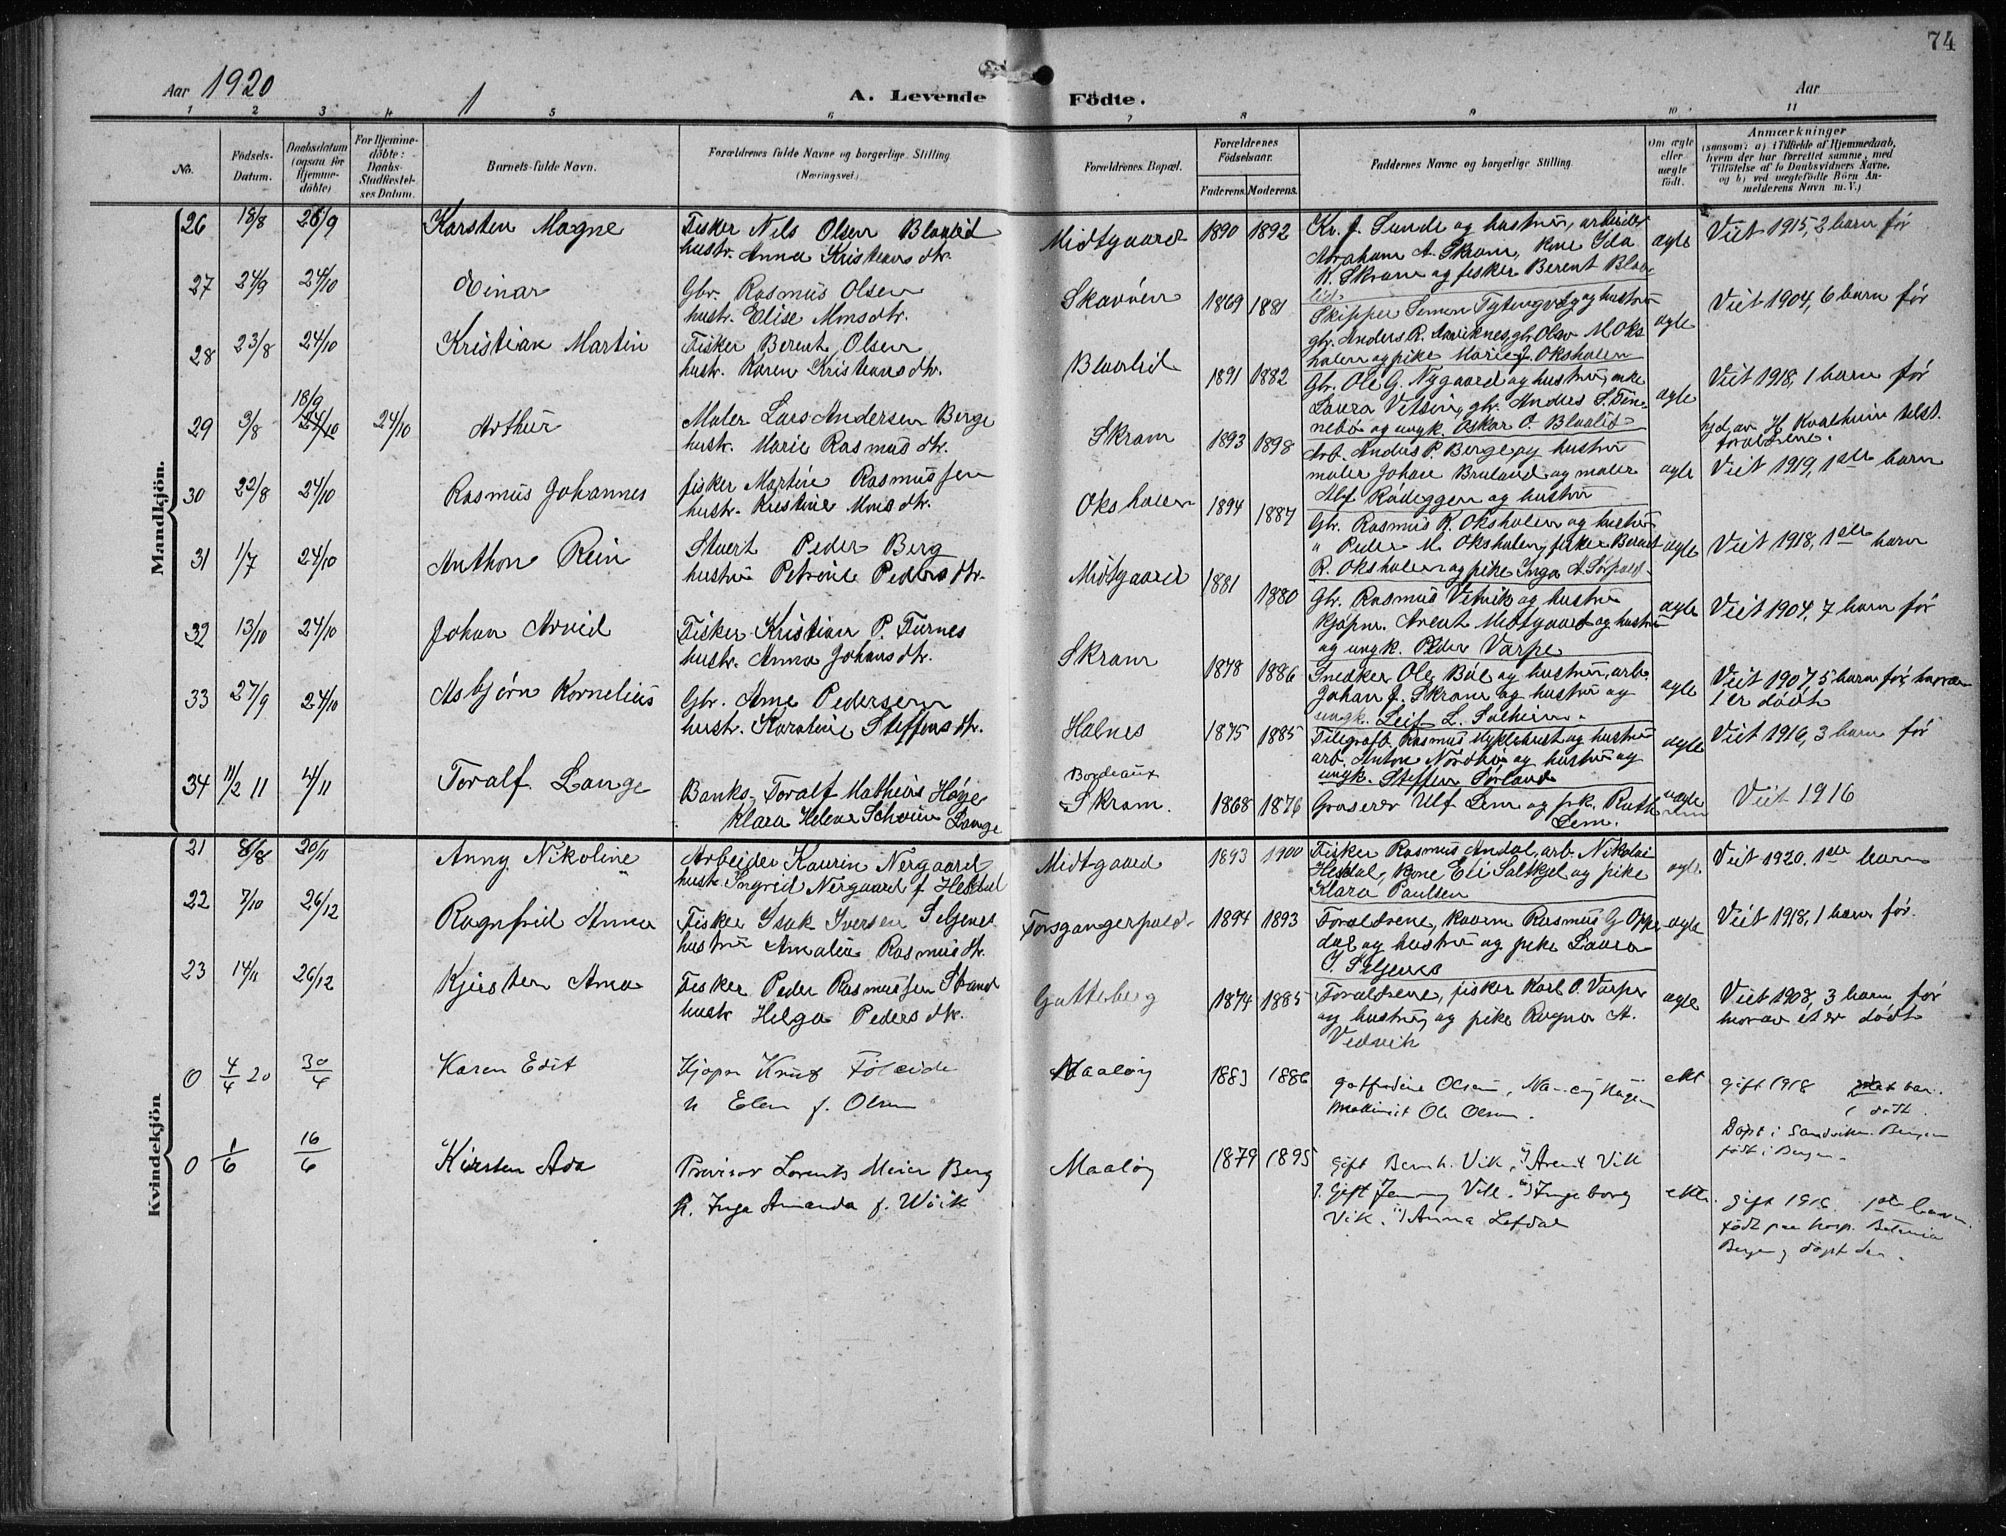 74
Aar 1920
1
A. Levende Födte.
Aar
1 2 3 4 5 6 7 8 9 10 11
No.
Födsels-Datum.
Daabsdatum (ogsaa for Hjemme-döbte)
For Hjemme-döbte: Daabs-Stadfæstel-ses Datum.
Barnets fulde Navn.
Forældrenes fulde Navne og borgerlige Stilling (Næringsvei.)
Forældrenes Bopæl.
Forældrenes Födselsaar.
Faderens. Moderens.
Faddernes Navne og borgerlige Stilling.
Om ægte eller uægte födt.
Anmærkninger
(saasom: a) i Tilfælde af Hjemmedaab, hvem der har forrettet samme, med Tilföielse af to Daabsvidners Navne, og b) ved uægtefödte Börn An-melderens Navn m. V.)
Mandkjön.
26 18/8 26/9 Karsten Magne
Fisker Nils Olsen Blaalid
hustr. Anna Kristiansdtr.
Midtgaard 1890 1892
Kr. J. Lunde og hustru, arbeider
Abraham A. Skram, kone Ida
N. Skram og fisker Berent Blaa-
lid
ægte Viet 1915, 2 barn før
27 24/9 24/10 Einar
Gbr. Rasmus Olsen
hustr. Elise Monsdtr.
Skavøen 1869 1881
Skipper Simon Tytingvåg og hustru
gbr. Anders R. Aarviknes, gbr. Olav M. Oks
halen og pike Marie J. Okshalen
ægte Viet 1904, 6 barn før
28 23/8 24/10 Kristian Martin
Fisker Berent Olsen
hustr. Karen Kristiansdtr.
Blaalid 1891 1882
Gbr. Ole G. Nygaard og hustru, enke
Laura Vetsin, gbr. Andres S. Tin-
nebø og ungk. Oskar O. Blaalid
ægte Viet 1918, 1 barn før
29 3/8 18/9 24/10 24/10 Arthur
Maler Lars Andersen Berge
hustr. Marie Rasmusdtr.
Skram 1893 1898
Arb. Anders P. Berge og hustru
maler Johan Bruland og maler
Alf Rødeggen og hustru
ægte hjd. av H. Kvalheim tilst.
forældrene.
Viet 1919, 1ste barn
30 22/8 24/10 Rasmus Johannes
fisker Martin Rasmussen
hustr. Kristine Monsdtr.
Okshalen 1894 1887
Gbr. Rasmus R. Okshalen og hustru
" Peder M. Okshalen, fisker Bernt
R. Okshalen og pike Inga A. Sørpold
ægte Viet 1918, 1ste barn
31 1/7 24/10 Anthon Rein
Stuert Peder Berg
hustru Petrine Pedersdtr.
Midtgaard 1881 1880
Gbr. Rasmus Vemik og hustru
kjøpm. Arent Midtgaard og hustru
og ungk. Peder Varpe
ægte Viet 1904, 7 barn før
32 13/10 24/10 Johan Arvid
Fisker Kristian P. Furnes
hustr. Anna Johansdtr.
Skram 1878 1886
Snedker Ole Bøe og hustru, arb.
Johan J. Skram og hustru og
ungk. Leif L. Solheim.
ægte Viet 1907, 5 barn før, hvorav
1 er dødt
33 27/9 24/10 Asbjørn Kornelius
Gbr. Arne Pedersen
hustr. Karoline Steffensdtr.
Halnes 1875 1885
Telegrafb. Rasmus Myklebust og hustru
arb. Anton Nordbø og hustru og
ungk. Steffen Sørland
ægte Viet 1916, 3 barn før
34 11/2 11 4/11 Toralf Lange
Banks. Toralf Mathias Høye
Klara Helene Schøien Lange
Bordeaux
Skram. 1868 1876
Grosserer Ulf Lem og frk. Ruth
Lem.
uægte Viet 1916
Kvindekjön
21 8/8 20/11 Anny Nikoline
Arbeider Kaurin Nergaard
hustr. Ingrid Nergaard f. Hesdal
Midtgaard 1893 1900
Fisker Rasmus Andal, arb. Nikolai
Hesdal, kone Eli Saltkjel og pike
Klara Paulsen
ægte Viet 1920. 1ste barn
22 7/10 26/12 Ragnfrid Anna
Fisker Isak Iversen Seljenes
hustru Amalie Rasmusdtr.
Torsgangerpold 1894 1893
Forældrene, kaarm. Rasmus G Oppe
dal og hustru og pike Laura
I. Seljenes
ægte Viet 1918, 1 barn før.
23 14/11 26/12 Kjersten Anna
Fisker Peder Rasmussen Strand
hustr. Helga Pedersdtr.
Gotteberg 1874 1885
Forældrene, fisker Karl O. Varpe
og hustru, og pike Ragna A.
Vedvik
ægte Viet 1908, 3 barn før
hvorav et er dødt
0 4/4 20 30/4 Karen Edit
Kjøpm Knut Føleide
h Elen f. Olsen
Maaløy 1883 1886
Gotfredine Olsen, Nancy Hagen
Maskinist Ole Olsen.
ekte gift 1918
dødt.
0 1/6 16/6 Kirsten Ada
Provisor Lorents Meier Berg
h. Inga Amanda f. Wiik
Maaløy 1879 1895
Gift Bernh. Vik, Arent Vik
Gift Jenny Vik. Ingeborg
Vik. Anna Lefdal
ekte. Døpt i Sandviken Bergen
født i Bergen.
gift 1916 1ste barn.
født paa hosp. Betania
Bergen, døpt der.